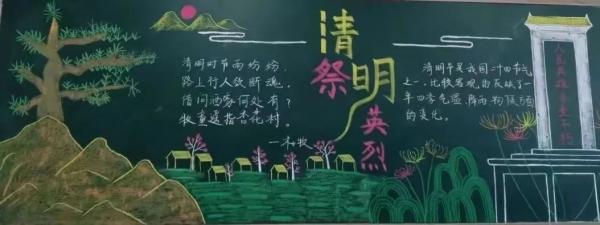 清明时节雨纷纷,
路上行人欲断魂。
借问酒家何处有?
牧童遥指杏花村。
—杜牧
清明
祭英烈
清明节是我国二十四节气
之一,比较客观的反映了一
年四季气温、降雨、物候方面
的变化。
人民英雄永垂不朽